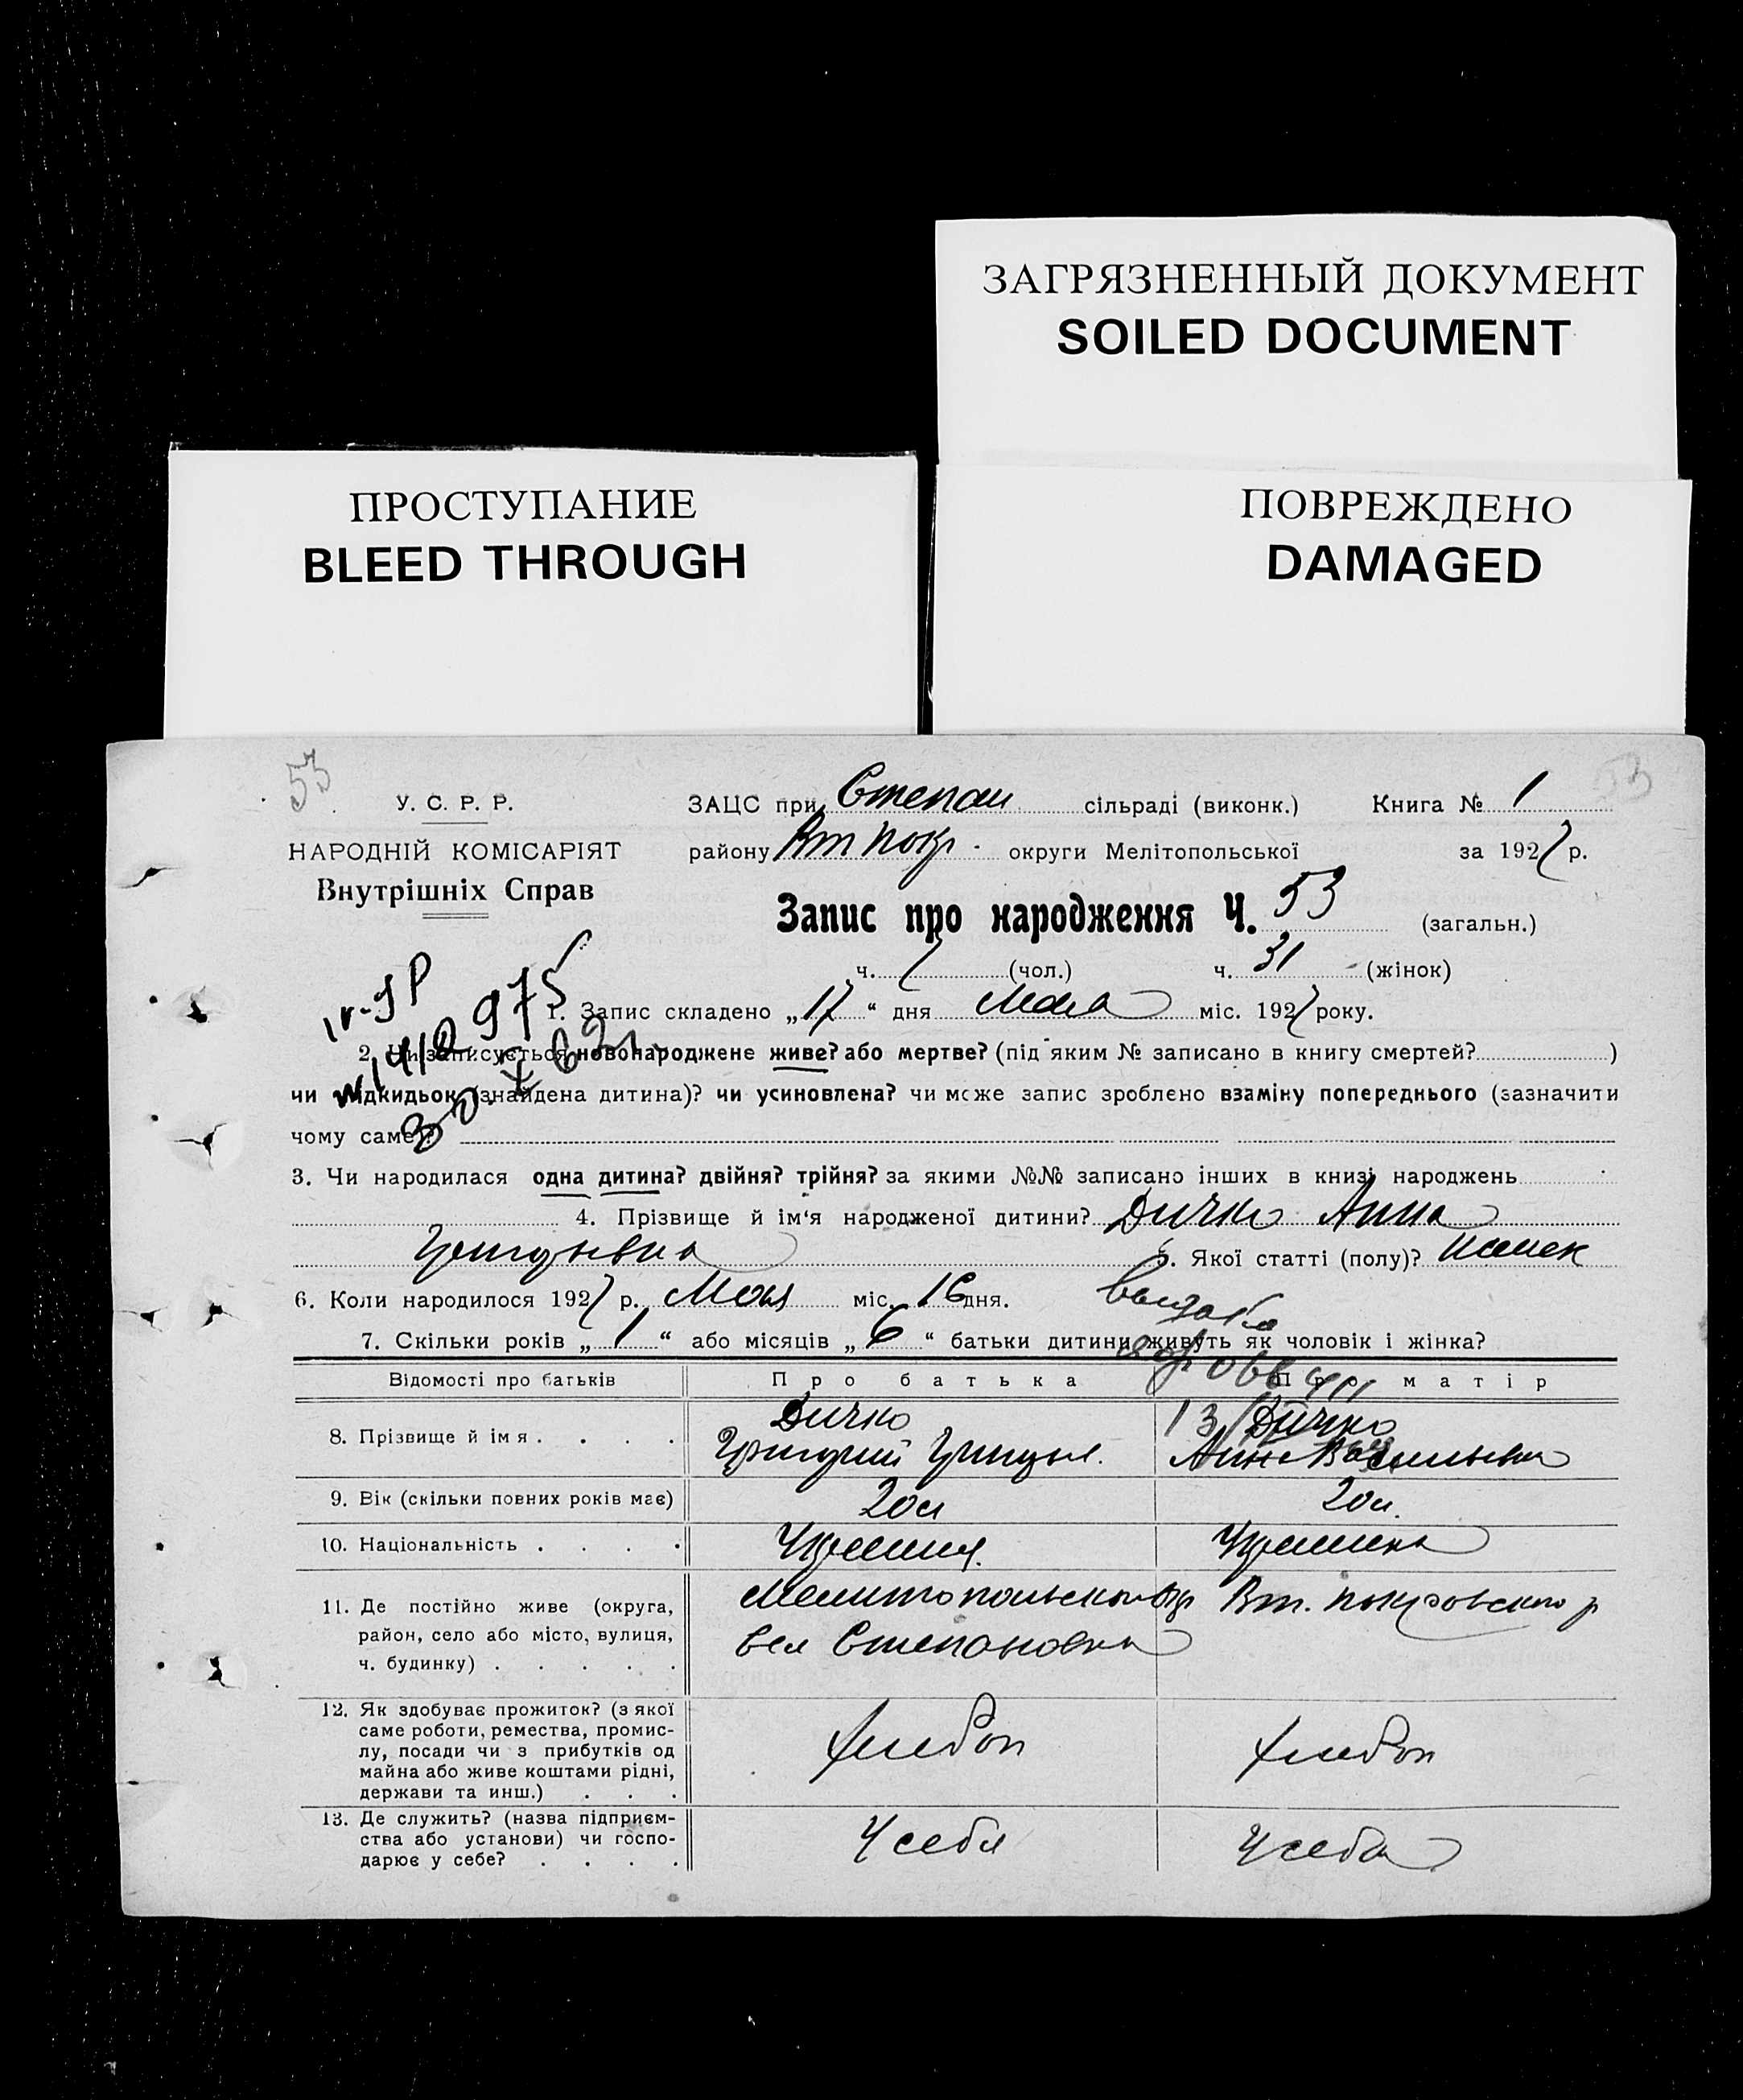 ЗАГРЯЗНЕННЫЙ ДОКУМЕНТ
SOILED DOCUMENT
ПРОСТУПАНИЕ
BLEED THROUGH
ПОВРЕЖДЕНО
DAMAGED
53
53
У. С. Р. Р.
НАРОДНІЙ КОМІСАРІЯТ
Внутрішніх Справ
ЗАЦС при Степан сільраді (виконк.) Книга № 1
району Вт Покр. округи Мелітопольської за 1927 р.
Запис про народження Ч. 53 (загальн.)
ч. (чол.) ч. 31 (жінок)
1. Запис складено „17“ дня Мая міс. 1927 року.
2. Чи записується новонароджене живе? або мертве? (під яким № записано в книгу смертей? )
чи підкидьок (знайдена дитина)? чи усиновлена? чи може запис зроблено взаміну попереднього (зазначити
чому саме)?
3. Чи народилася одна дитина? двійня? трійня? за якими №№ записано інших в книзі народжень
4. Прізвище й ім‘я народженої дитини? Дичко Анна
Григорьевна 5. Якої статті (полу)?
6. Коли народилося 1927 р. Мая міс. 16 дня.
7. Скільки років „1“ або місяців „6“ батьки дитини живуть як чоловік і жінка?
Відомості про батьків Про батька Про матір
8. Прізвище й імя . . . . Дичко Дичко
Григорий Анна Васильевна
9. Вік (скільки повних років має) 20 л 20 л.
10. Національність . . . .
11. Де постійно живе (округа, район, село або місто, вулиця, ч. будинку) . . . . .
Мелитопольской окр Вт. Покровского р
Степановка
12. Як здобуває прожиток? (з якої
саме роботи, ремества, промис-
лу, посади чи з прибутків од
майна або живе коштами рідні,
держави та инш.) . . .
хлебоп хлебоп
13. Де служить? (назва підприєм-
ства або установи) чи госпо-
дарює у себе? . . . .
У себя У себя